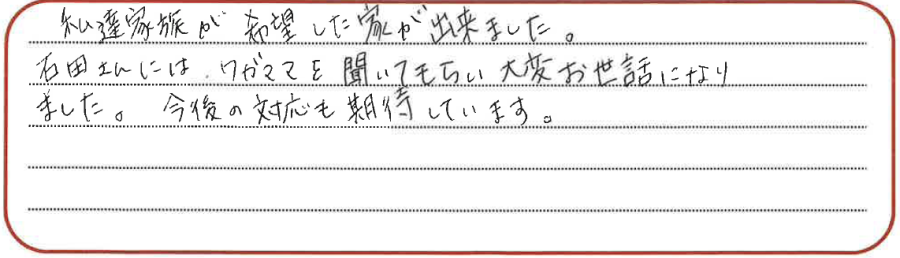 私達家族が希望した家が出来ました。
石田さんには、ワガママを聞いてもらい大変お世話になり
ました。今後の対応も期待しています。